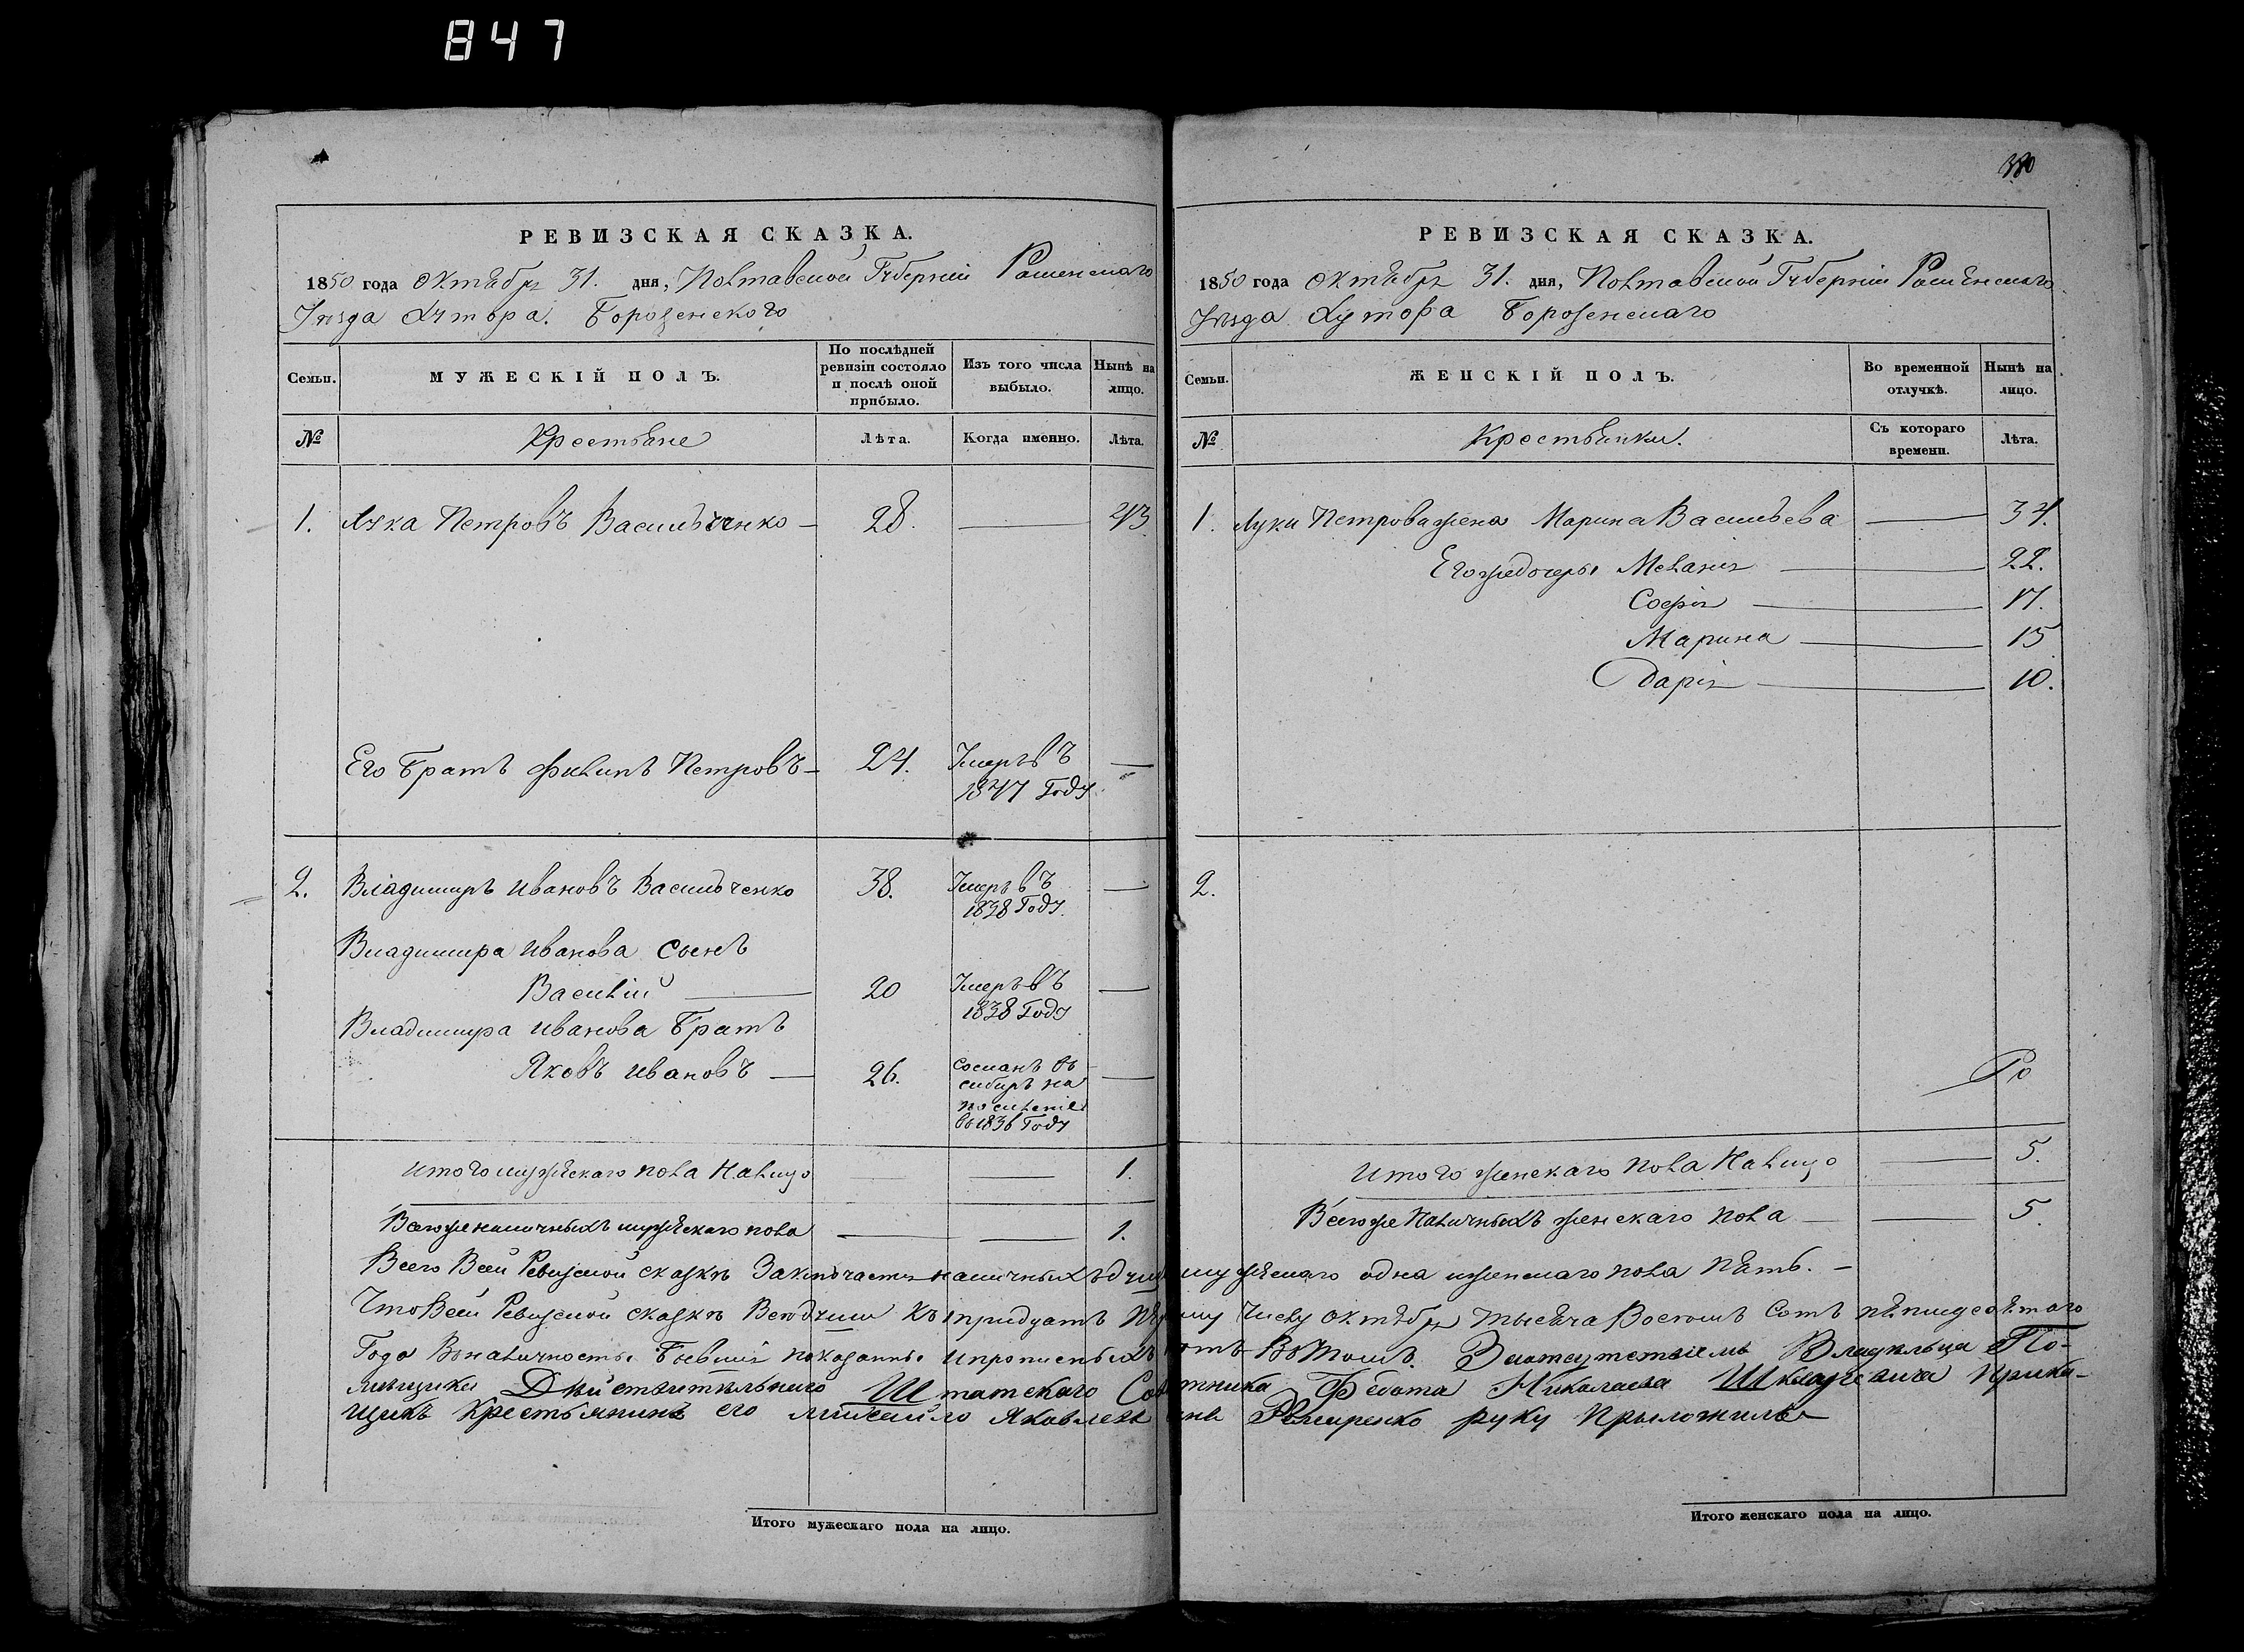 847
380
РЕВИЗСКАЯ СКАЗКА.
1850 года Октября 31. дня, Полтавской Губерніи Роменскаго
Уезда Хутора. Борозенского
Семьи.
МУЖЕСКІЙ ПОЛЪ.
По послѣдней ревизіи состояло и послѣ оной прибыло.
Изъ того числа выбыло.
Нынѣ на лицо.
№
Крестьяне
Лѣта.
Когда именно.
Лѣта.
1. Лука Петровъ Васильченко — 28. — 43
Его Братъ Филипъ Петровъ — 24. Умеръ въ —
1847 Году.
2. Владимиръ Ивановъ Васильченко 38. Умеръ въ —
1838 Году.
Владимира Иванова Сынъ
Василій — 20 Умеръ въ —
1838 Году
Владимира Иванова Братъ
Яковъ Ивановъ — 26. Сосланъ въ —
сибирь на
поселеніе
въ 1836 Году
Итого мужескаго пола Налицо — — 1.
Всего же наличныхъ мужескаго пола — — 1.
РЕВИЗСКАЯ СКАЗКА.
1850 года Октября 31. дня, Полтавской Губерніи Роменскаго
Уезда Хутора Борозенскаго
Семьи.
ЖЕНСКІЙ ПОЛЪ.
Во временной отлучкѣ.
Нынѣ на лицо.
№
Крестьянки.
Съ котораго времени.
Лѣта.
1. Луки Петрова жена Марина Васильева — 34.
Его же дочеры Меланія — 22.
Софія — 17.
Марина — 15
Дарія — 10.
2.
Итого женскаго пола Налицо — 5.
Всего же Наличныхъ женскаго пола — — 5.
Всего Всей Ревизской сказке Заключается наличныхъ мужескаго одна и женскаго пола пять. —
Что Всей Ревизской сказке Все къ тридцать Первому Числу Октября тысяча Восемь Сотъ пятидесятого
Года Въ наличности Бывшія показанны и прописныхъ нетъ Вътомъ. За отсутствіемъ Владельца По-
мещика Действительного Штатского Советника Федота Николаева Шкляревича Прика-
щикъ Крестьянинъ его Михайло Яковлевъ руку Прыложилъ
Итого мужескаго пола на лицо.
Итого женскаго пола на лицо.